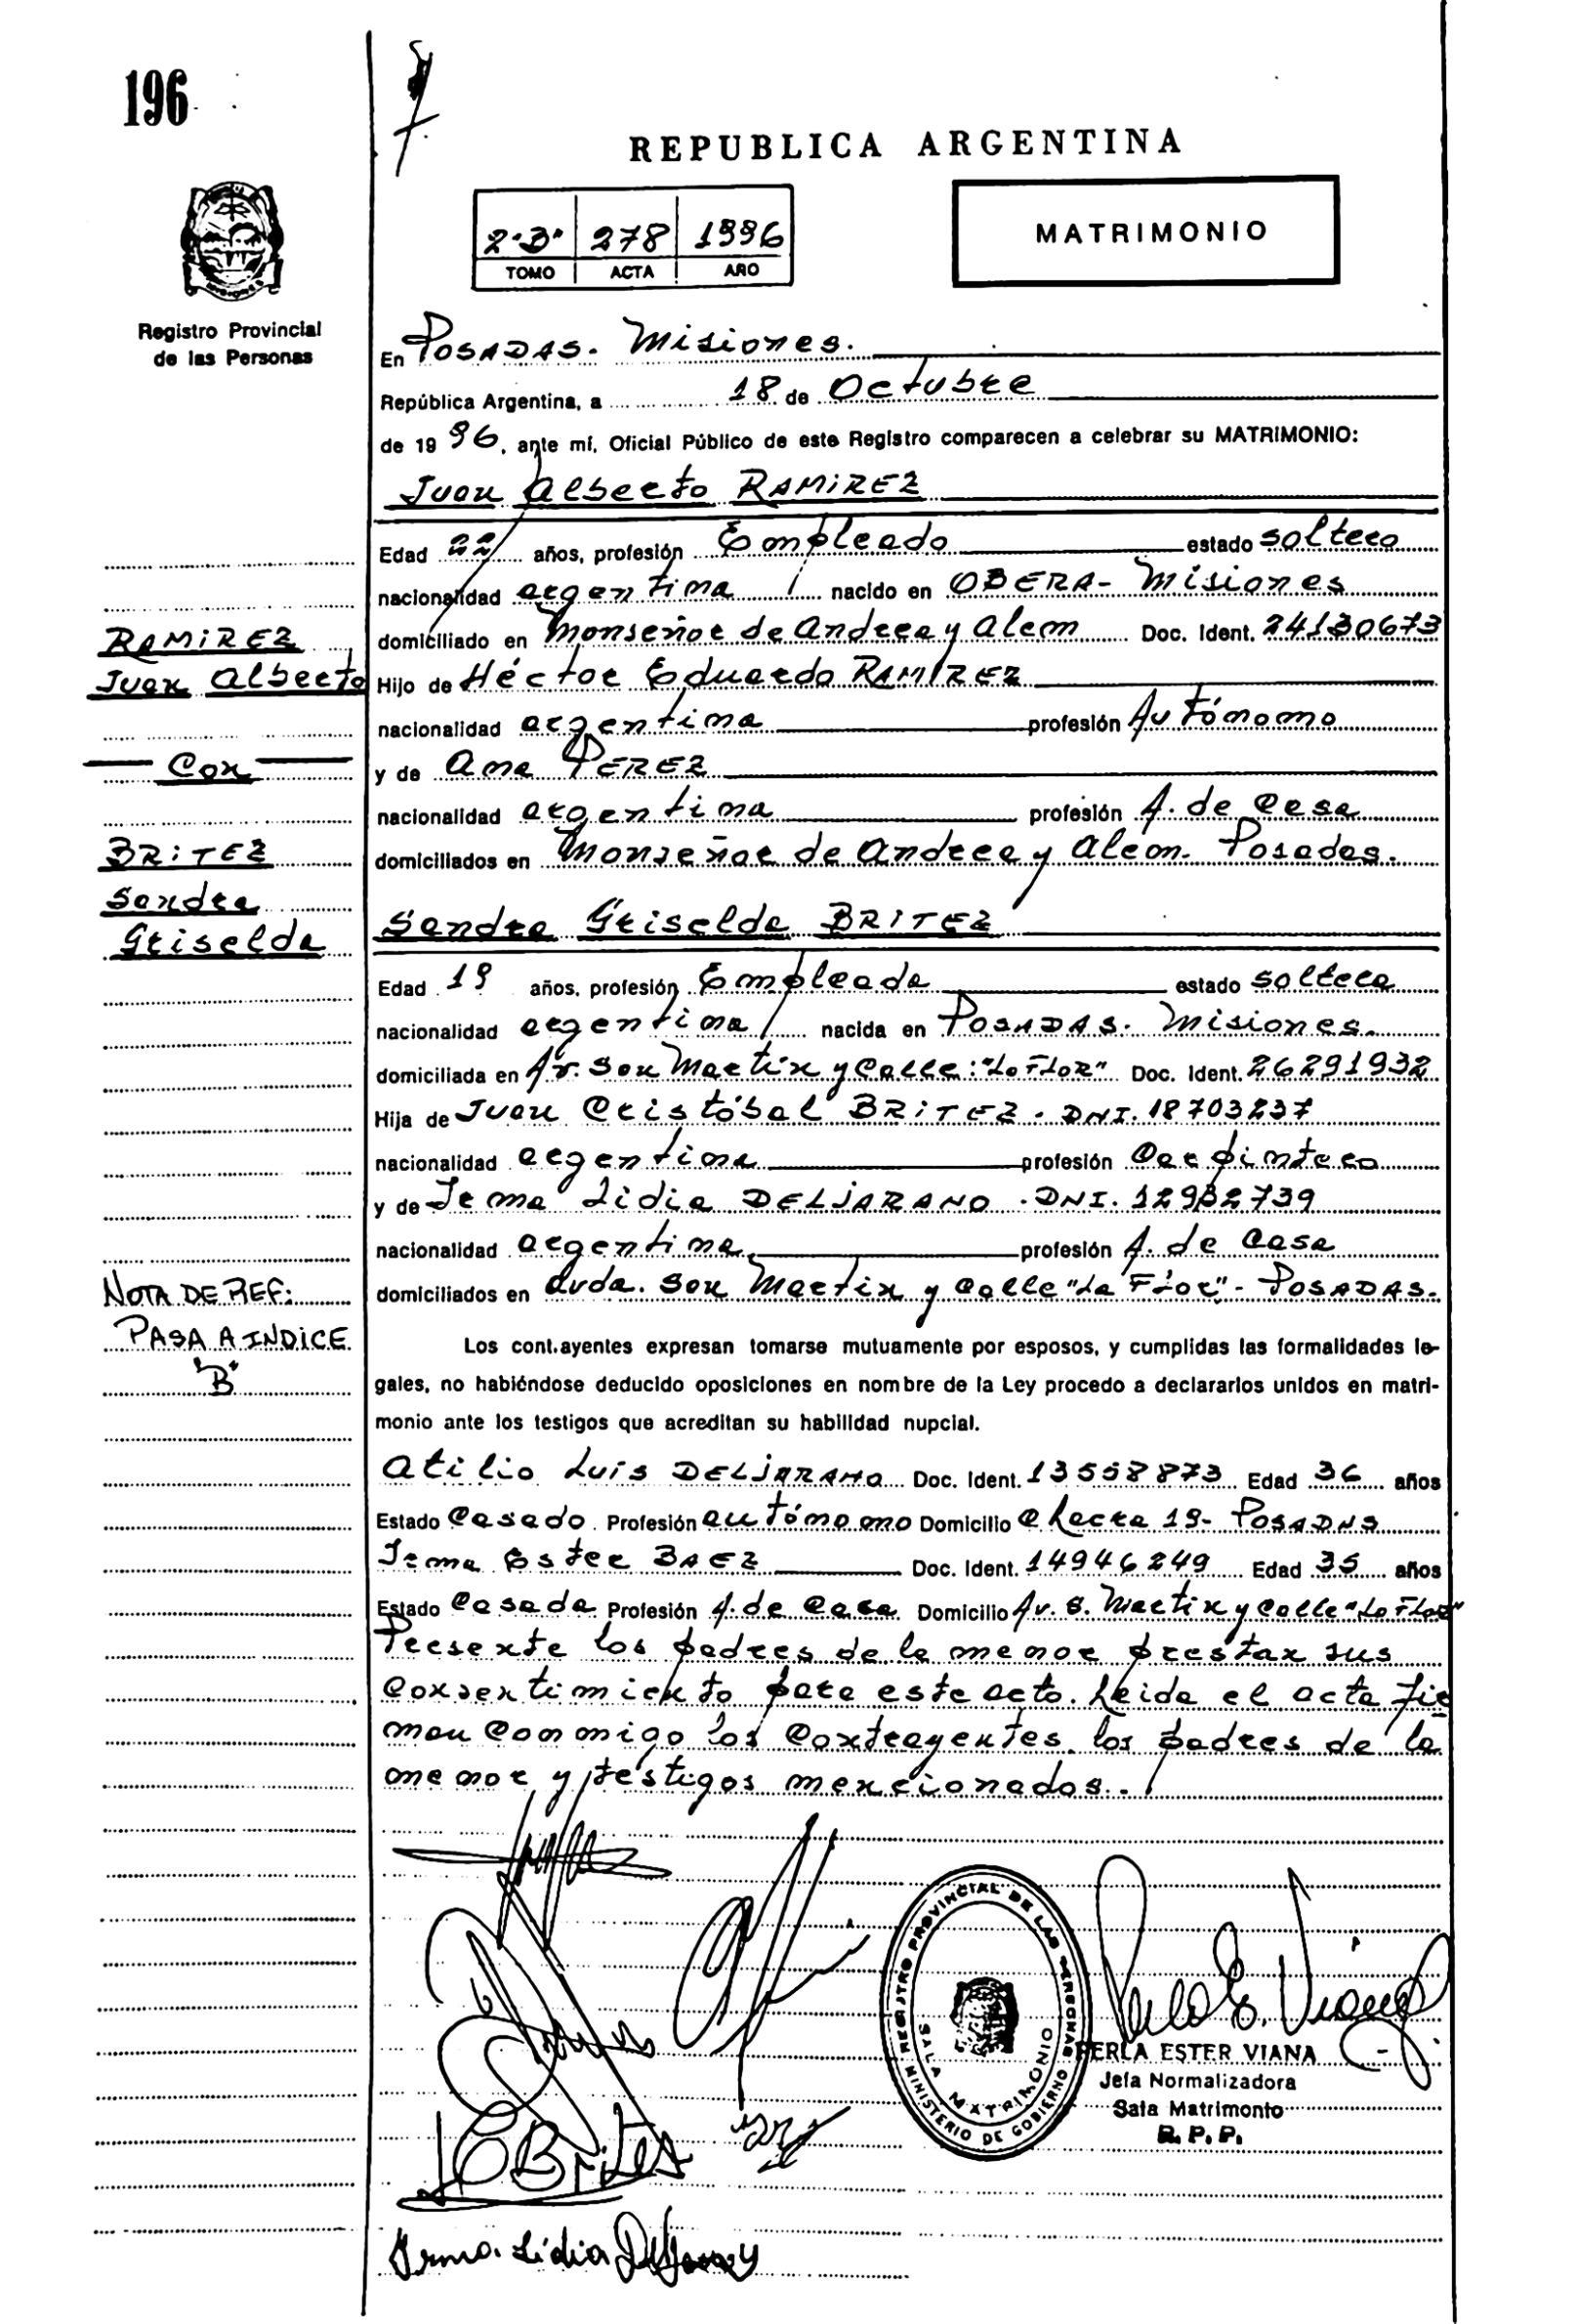 196
REPUBLICA ARGENTINA
2·B· 278 1996
TOMO ACTA AÑO
MATRIMONIO
Registro Provincial
de las Personas
En POSADAS. Misiones.
República Argentina, a 18 de Octubre
de 1996, ante mí, Oficial Público de este Registro comparecen a celebrar su MATRIMONIO:
Juan Alberto RAMIREZ
Edad 22 años, profesión Empleado estado soltero
nacionalidad argentina nacido en OBERA- Misiones
domiciliado en Monseñor de Andrea y Alem Doc. Ident. 24130673
Hijo de Héctor Eduardo RAMIREZ
nacionalidad argentina profesión Autónomo
y de Ana PEREZ
nacionalidad argentina profesión A. de Casa
domiciliados en Monseñor de Andrea y Alem. Posadas.
RAMIREZ
Juan Alberto
Con
BRITEZ
Sandra
Griselda
Sandra Griselda BRITEZ
Edad 19 años, profesión Empleada estado soltera
nacionalidad argentina nacida en POSADAS. Misiones.
domiciliada en Av. San Martín y Calle: "La FLOR" Doc. Ident. 26291932
Hija de Juan Cristóbal BRITEZ. DNI. 18703237
nacionalidad argentina profesión Carpintero
y de Irma Lidia DELJARANO. DNI. 12982739
nacionalidad argentina profesión A. de Casa
domiciliados en Avda. San Martín y Calle "La Flor"- POSADAS.
NOTA DE REF:
PASA A INDICE
"B"
Los cont.ayentes expresan tomarse mutuamente por esposos, y cumplidas las formalidades le-
gales, no habiéndose deducido oposiciones en nombre de la Ley procedo a declararlos unidos en matri-
monio ante los testigos que acreditan su habilidad nupcial.
Atilio Luís DELJARANO Doc. Ident. 13558873 Edad 36 años
Estado Casado Profesión autónomo Domicilio Chacra 19- POSADAS
Irma Ester BAEZ Doc. Ident. 14946249 Edad 35 años
Estado Casada Profesión A. de Casa Domicilio Av. S. Martín y Calle "La Flor"
Presente los padres de la menor prestan sus
consentimiento para este acto. Leida el acta fir
man conmigo los contrayentes, los padres de la
menor y testigos mencionados.
REGISTRO PROVINCIAL DE LAS PERSONAS
SALA MATRIMONIO
MINISTERIO DE GOBIERNO
PERLA ESTER VIANA
Jefa Normalizadora
Sala Matrimonio
R. P. P.
JC Britez
Irma. Lidia